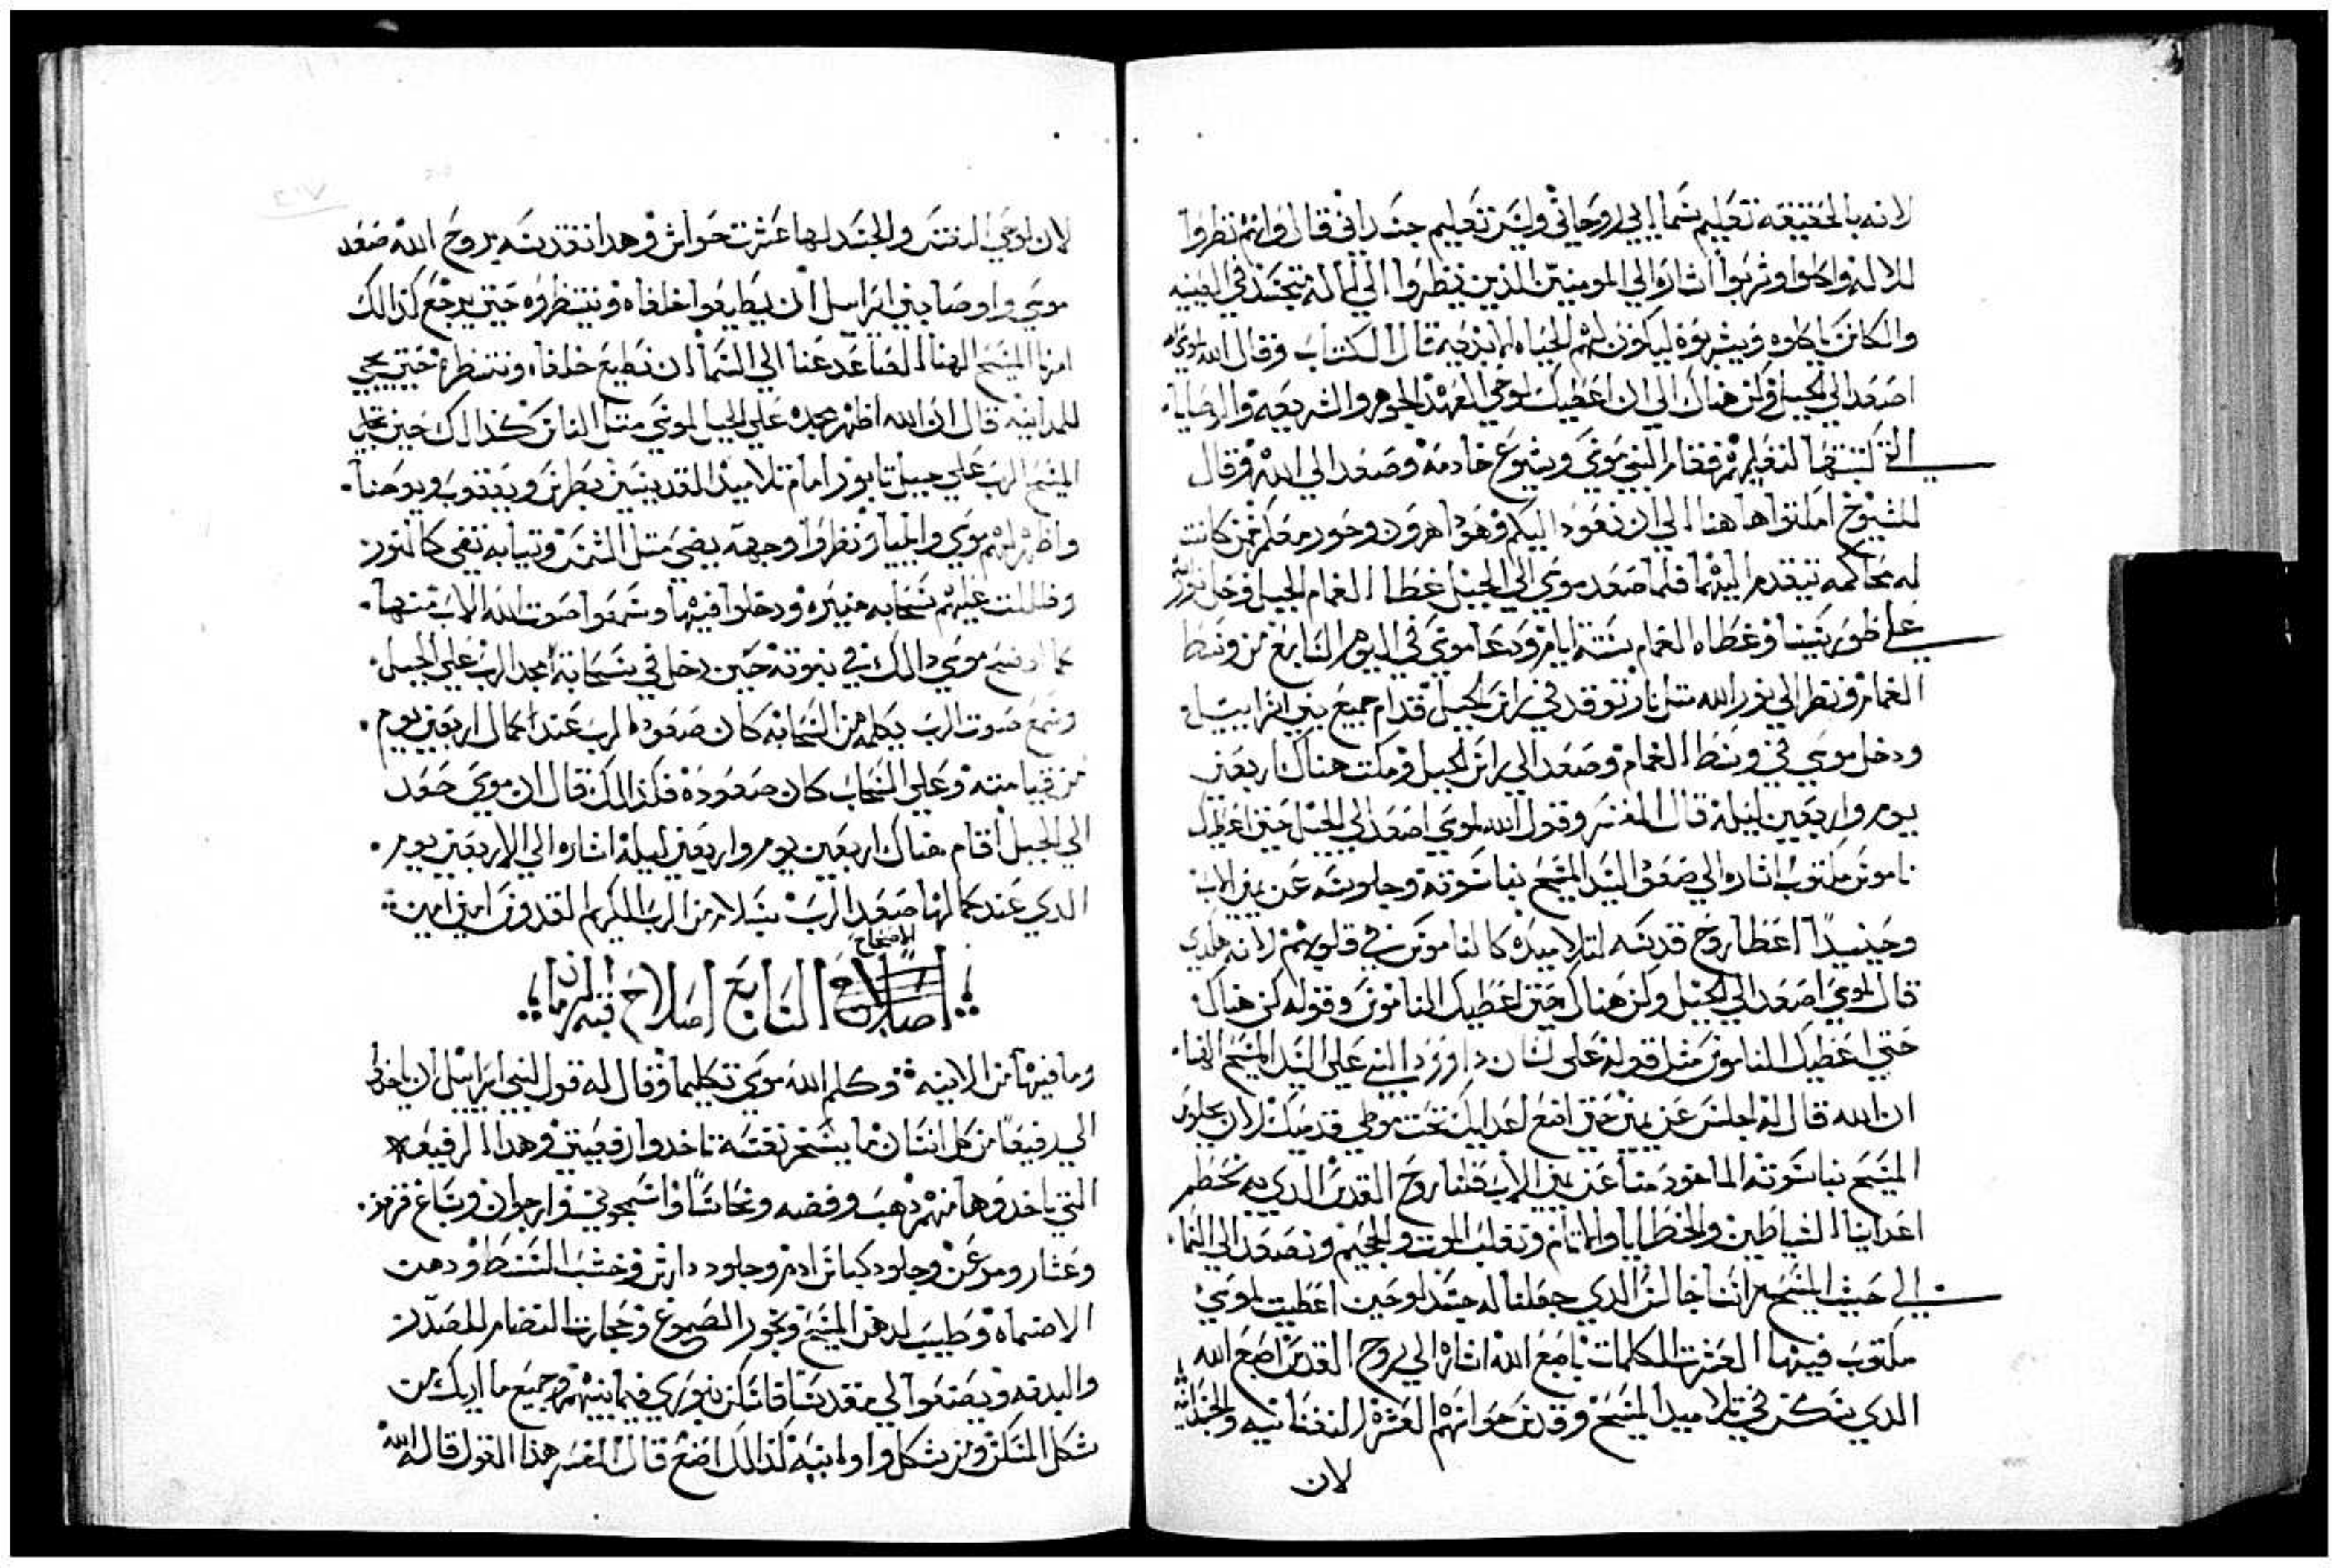 لانه بالحقيقه تعليم سماايي روحاني وليس تعليم جسداني قال وانهم نظروا
للاله واكلوا وشربوا اشاره الي المومنين الذين ينظروا الي الاله متجسد في البيعه
والكاس ياكلوه ويشربوه ليكون لهم الحياه الابديه قال الكتاب وقال الله لموسي
اصعد الي الجبل وكن هناك الي ان اعطيك لوحي العهد الجوهر والشريعه والوصايا
التي كتبتها لتعليمهم فقام النبي موسي ويشوع خادمه وصعد الي الله وقال
للشيوخ امكتوا هاهنا الي ان نعود اليكم وهودا هرون وحور معكم فمن كانت
له محاكمه يتقدم اليهما فلما صعد موسي الي الجبل غطا الغمام الجبل وحل نور الله
علي طور سينا وغطاه الغمام ستة ايام ودعا موسي في اليوم السابع من وسط
الغمام ونظر الي نور الله متل نار توقد في راس الجبل قدام جميع بني اسراييل
ودخل موسي في وسط الغمام وصعد الي راس الجبل ومكت هناك اربعين
يوم واربعين ليلة قال المفسر وقول الله لموسي اصعد الي الجبل حتي اعطيك
ناموس مكتوب اشاره الي صعود السيد المسيح بناسوته وجلوسه عن يمين الاب
وحينيدا اعطا روح قدسه لتلاميده كالناموس في قلوبهم لانه هكدي
قال لموسي اصعد الي الجبل وكن هناك حتي اعطيك الناموس وقوله كن هناك
حتي اعطيك الناموس متل قوله علي لسان داوود النبي علي السيد المسيح
ان الله قال له اجلس عن يميني حتي اضع اعدايك تحت موطي قدميك لان بجلوس
المسيح بناسوته الماخود منا عن يمين الاب قبلنا روح القدس الدي به نحطم
اعداينا الشياطين والخطايا والاتام ونغلب الموت والجحيم ونصعد الي السما
الي حيث المسيح جالس الدي جعلنا له جسد لوحين اعطيت لموسي
مكتوب فيها العشرت الكلمات باصبع الله اشاره الي روح القدس اصبع الله
الدي يسكن في تلاميد المسيح وقدس حواسهم العشرة النفسانيه والجسدانيه
لان
لان لوحي النفس والجسد لها عشرت حواس وهدا تقديسه بروح الله صعد
موسي واوصا بني اسراييل ان يطيعوا خلفاه وينتظروه حتي يرجع كدالك
امرنا المسيح الهنا الصاعد عنا الي السما ان نطيع خلفاه وننتظره حتي يجي
للمداينه قال ان الله اظهر مجده علي الجبل لموسي متل النار كدالك حين تجلي
المسيح الرب علي جبل تابور امام تلاميد القديسين بطرس ويعقوب ويوحنا
واظهر لهم موسي وايلياز ونظروا وجهه يضي متل الشمس وتيابه تضي كالنور
وظللت عليهم سحابه منيره ودخلوا فيها وسمعوا صوت الله الاب منها
كما رسم موسي دالك في نبوته حين دخل في سحابة مجد الرب علي الجبل
وسمع صوت الرب يكلمه من السحابه كان صعود الرب عند كمال اربعين يوم
من قيامته وعلي السحاب كان صعوده فكدالك قال ان موسي صعد
الي الجبل اقام هناك اربعين يوم واربعين ليلة اشاره الي الاربعين يوم
الدي عند كمالها صعد الرب بسلام من الرب الكريم القدوس امين امين
الاصحاح
السابع اصلاح قبة الزمان
وما فيها من الانيه وكلم الله موسي تكليما وقال له قول لبني اسراييل ان ياخدوا
الي رفيعا من كل انسان ما يسخر نفسه تاخدوا رفيعتي وهدا الرفيعه
التي تاخدوها منهم دهب وفضه ونحاسا واسمنجوني وارجوان وصباغ قرمز
وعشار ومرعز وجلود كباش ادم وجلود دارش وخشب السنط ودهن
الاضماه وطيب لدهن المسيح وبخور المصبوغ وحجارت النضام للصدر
والبدنه ويصنعوا لي مقدسا فاسكن بنوري فيما بينهم وجميع ما اريك من
شكل المسكن ومن شكل اوانيه كدالك اصنع قال المفسر هدا القول قاله الله